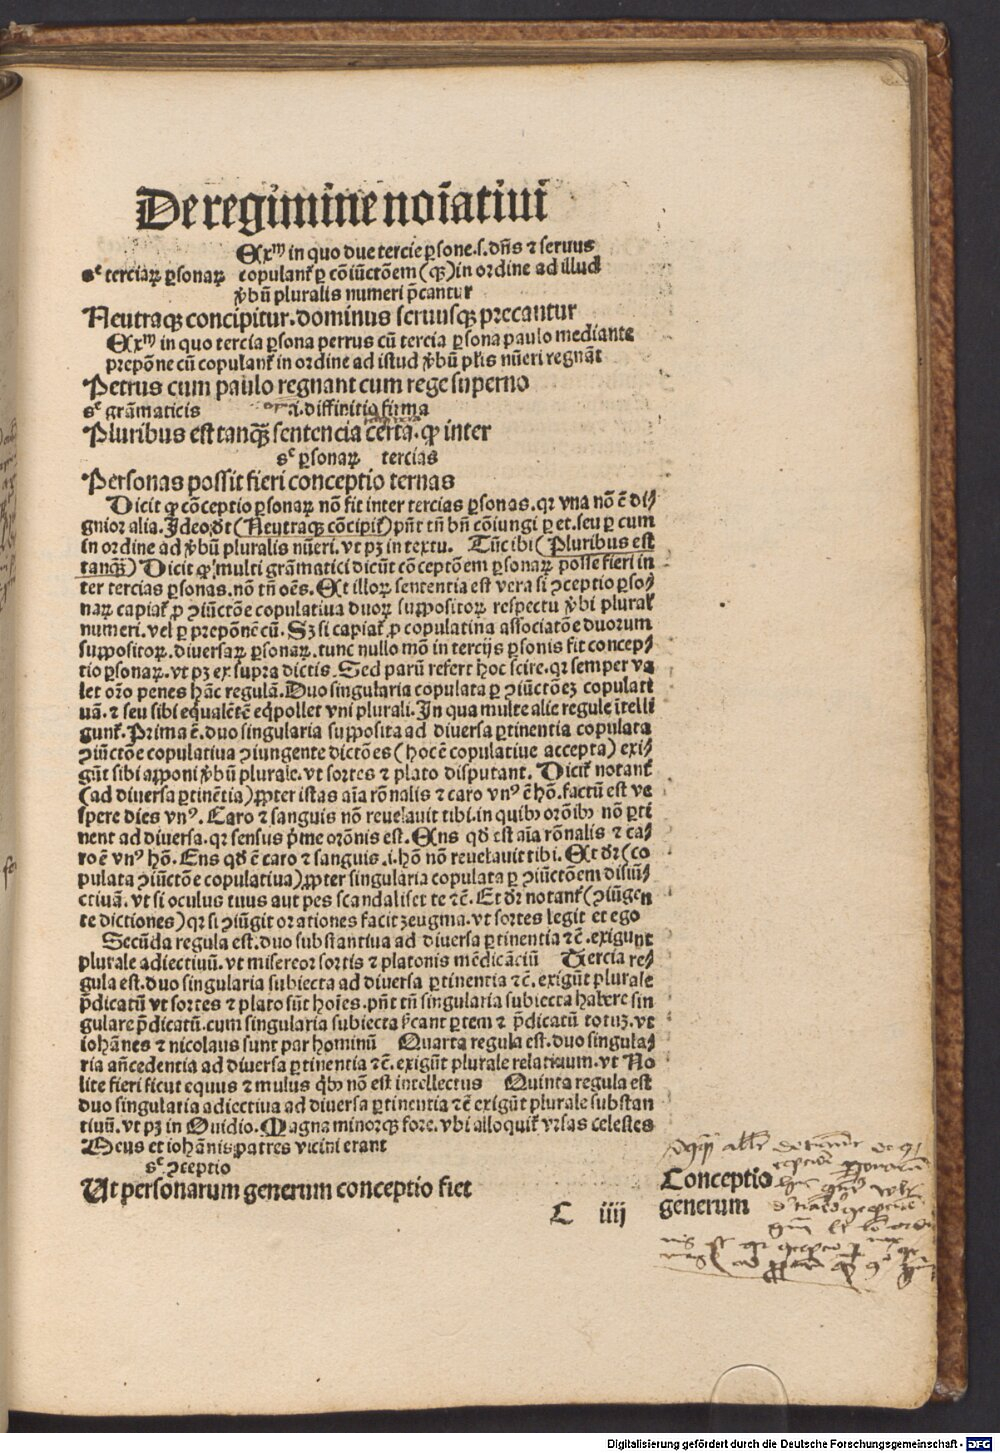 De regimine noīatiui
Exᵐ in quo due tercie ꝑsone.s.dn̄s ⁊ seruus
sᶜ terciaꝝ ꝑsonaꝝ copulant᷑ ꝑ cōiūctōem (qꝫ) in ordine ad illud
v̓bū pluralis numeri p̄cantur
Neutraqꝫ concipitur.dominus seruusqꝫ precantur
Exᵐ in quo tercia ꝑsona petrus cū tercia ꝑsona paulo mediante
prepōne cū copulant᷑ in ordine ad istud v̓bū pl̄is nūeri regnāt
Petrus cum paulo regnant cum rege superno
sᶜ grāmaticis .i.diffinitio firma
Pluribus est tanqꝫ̄ sentencia certa.ꝙ inter
sᶜ ꝑsonaꝝ tercias
Personas possit fieri conceptio ternas
Dicit ꝙ cōceptio ꝑsonaꝝ nō fit inter tercias ꝑsonas.qꝛ vna nō ē di⸗
gnior alia.Ideo dr̄t (Neutraqꝫ cōcipit᷑) pn̄t tn̄ bn̄ cōiungi ꝑ et.seu ꝑ cum
in ordine ad v̓bū pluralis nūeri.vt pꝫ in textu. Tūc ibi (Pluribus est
tanqꝫ̄) Dicit ꝙ multi grāmatici dicūt cōceptōem ꝑsonaꝝ posse fieri in
ter tercias ꝑsonas.nō tn̄ oēs.Et illoꝝ sententia est vera si ꝯceptio ꝑso⸗
naꝝ capiat᷑ ꝓ ꝯiūctōe copulatiua duoꝝ suppositoꝝ respectu v̓bi plural̓
numeri.vel ꝑ prepōnē cū.Sꝫ si capiat᷑ ꝓ copulatiua associatōe duorum
suppositoꝝ.diuersaꝝ ꝑsonaꝝ.tunc nullo mō in tercijs ꝑsonis fit concep⸗
tio ꝑsonaꝝ.vt pꝫ ex supra dictis.Sed parū refert hoc scire.qꝛ semper va
let or̄o penes hāc regulā.Duo singularia copulata ꝑ ꝯiūctōeꝫ copulati
uā.⁊ seu sibi equalētē eq̄pollet vni plurali.In qua multe alie regule ītelli
gunt᷑.Prima ē.duo singularia supposita ad diuersa ꝑtinentia copulata
ꝯiūctōe copulatiua ꝯiungente dictōes (hoc ē copulatiue accepta) exi⸗
gūt sibi apponi v̓bū plurale.vt sortes ⁊ plato disputant. Dicit᷑ notant᷑
(ad diuersa ꝑtinētia) ꝓpter istas aīa rōnalis ⁊ caro vnꝰ ē hō.factū est ve
spere dies vnꝰ. Caro ⁊ sanguis nō reuelauit tibi.in quibꝫ orōibꝫ nō ꝑti
nent ad diuersa.qꝛ sensus p̄me orōnis est.Ens qd̓ est aīa rōnalis ⁊ ca⸗
ro ē vnꝰ hō.Ens qd̓ ē caro ⁊ sanguis.i.hō nō reuelauit tibi.Et dr̄ (co
pulata ꝯiūctōe copulatiua) ꝓpter singularia copulata ꝑ ꝯiūctōem disiū⸗
ctiuā.vt si oculus tuus aut pes scandaliset te ⁊c̄.Et dr̄ notant᷑ (ꝯiūgen
te dictiones) qꝛ si ꝯiūgit orationes facit zeugma.vt sortes legit et ego
Secūda regula est.duo substantiua ad diuersa ꝑtinentia ⁊c̄.exigunt
plurale adiectiuū.vt misereor sortis ⁊ platonis mēdicāciū Tercia re⸗
gula est.duo singularia subiecta ad diuersa ꝑtinentia ⁊c̄.exigūt plurale
p̄dicatū vt sortes ⁊ plato sūt hoīes.pn̄t tn̄ singularia subiecta habere sin
gulare p̄dicatū.cum singularia subiecta s̓cant ꝑtem ⁊ p̄dicatū totuꝫ.vt
iohānes ⁊ nicolaus sunt par hominū Quarta regula est.duo singula⸗
ria añcedentia ad diuersa ꝑtinentia ⁊c̄.exigūt plurale relatiuum.vt No
lite fieri sicut equus ⁊ mulus qͥbꝫ nō est intellectus Quinta regula est
duo singularia adiectiua ad diuersa ꝑtinentia ⁊c̄ exigūt plurale substan
tiuū.vt pꝫ in Ouidio.Magna minorqꝫ fore.vbi alloquit᷑ vrsas celestes
Meus et iohānis patres vicini erant
sᶜ ꝯceptio
Ut personarum generum conceptio fiet
Conceptio
generum
C iiij
Digitalisierung gefördert durch die Deutsche Forschungsgemeinschaft - DFG